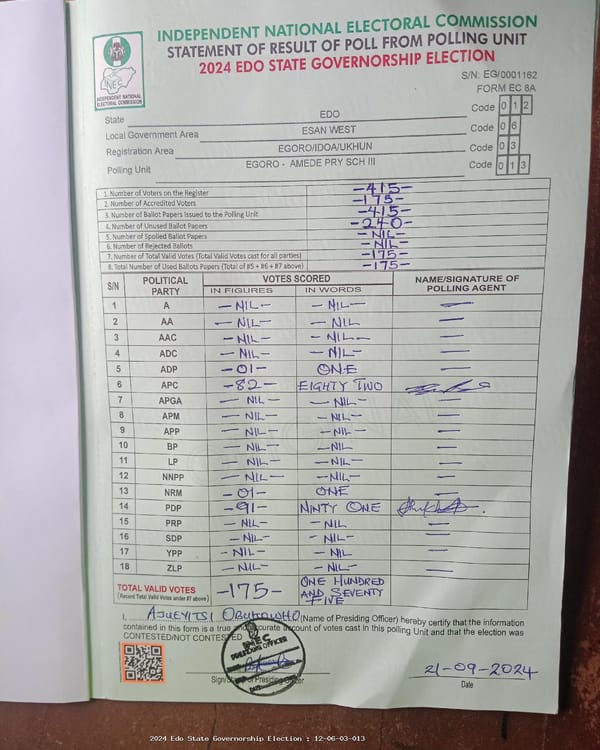 INDEPENDENT NATIONAL ELECTORAL COMMISSION
STATEMENT OF RESULT OF POLL FROM POLLING UNIT
2024 EDO STATE GOVERNORSHIP ELECTION
INEC
INDEPENDENT NATIONAL ELECTORAL COMMISSION
S/N: EG/0001162
FORM EC 8A
State EDO Code 0 1 2
Local Government Area ESAN WEST Code 0 6
Registration Area EGORO/IDOA/UKHUN Code 0 3
Polling Unit EGORO - AMEDE PRY SCH III Code 0 1 3
1. Number of Voters on the Register -415-
2. Number of Accredited Voters -175-
3. Number of Ballot Papers Issued to the Polling Unit -415-
4. Number of Unused Ballot Papers -240-
5. Number of Spoiled Ballot Papers -NIL-
6. Number of Rejected Ballots -NIL-
7. Number of Total Valid Votes (Total Valid Votes cast for all parties) -175-
8. Total Number of Used Ballots Papers (Total of #5 + #6 + #7 above) -175-
S/N POLITICAL PARTY VOTES SCORED NAME/SIGNATURE OF POLLING AGENT
IN FIGURES IN WORDS
1 A -NIL- -NIL-
2 AA -NIL- -NIL
3 AAC -NIL- -NIL-
4 ADC -NIL- -NIL-
5 ADP -01- ONE
6 APC -82- EIGHTY TWO
7 APGA -NIL- -NIL-
8 APM -NIL- -NIL-
9 APP -NIL- -NIL-
10 BP -NIL- -NIL
11 LP -NIL- -NIL-
12 NNPP -NIL- -NIL-
13 NRM -01- ONE
14 PDP -91- NINTY ONE
15 PRP -NIL- -NIL
16 SDP -NIL- -NIL-
17 YPP -NIL- -NIL
18 ZLP -NIL- -NIL-
TOTAL VALID VOTES -175- ONE HUNDRED
(Record Total Valid Votes under #7 above) AND SEVENTY
FIVE
I, (Name of Presiding Officer) hereby certify that the information
contained in this form is a true and accurate account of votes cast in this polling Unit and that the election was
CONTESTED/NOT CONTESTED
INEC
PRESIDING OFFICER
DATE
21-09-2024
Signature of Presiding Officer Date
2024 Edo State Governorship Election : 12-06-03-013